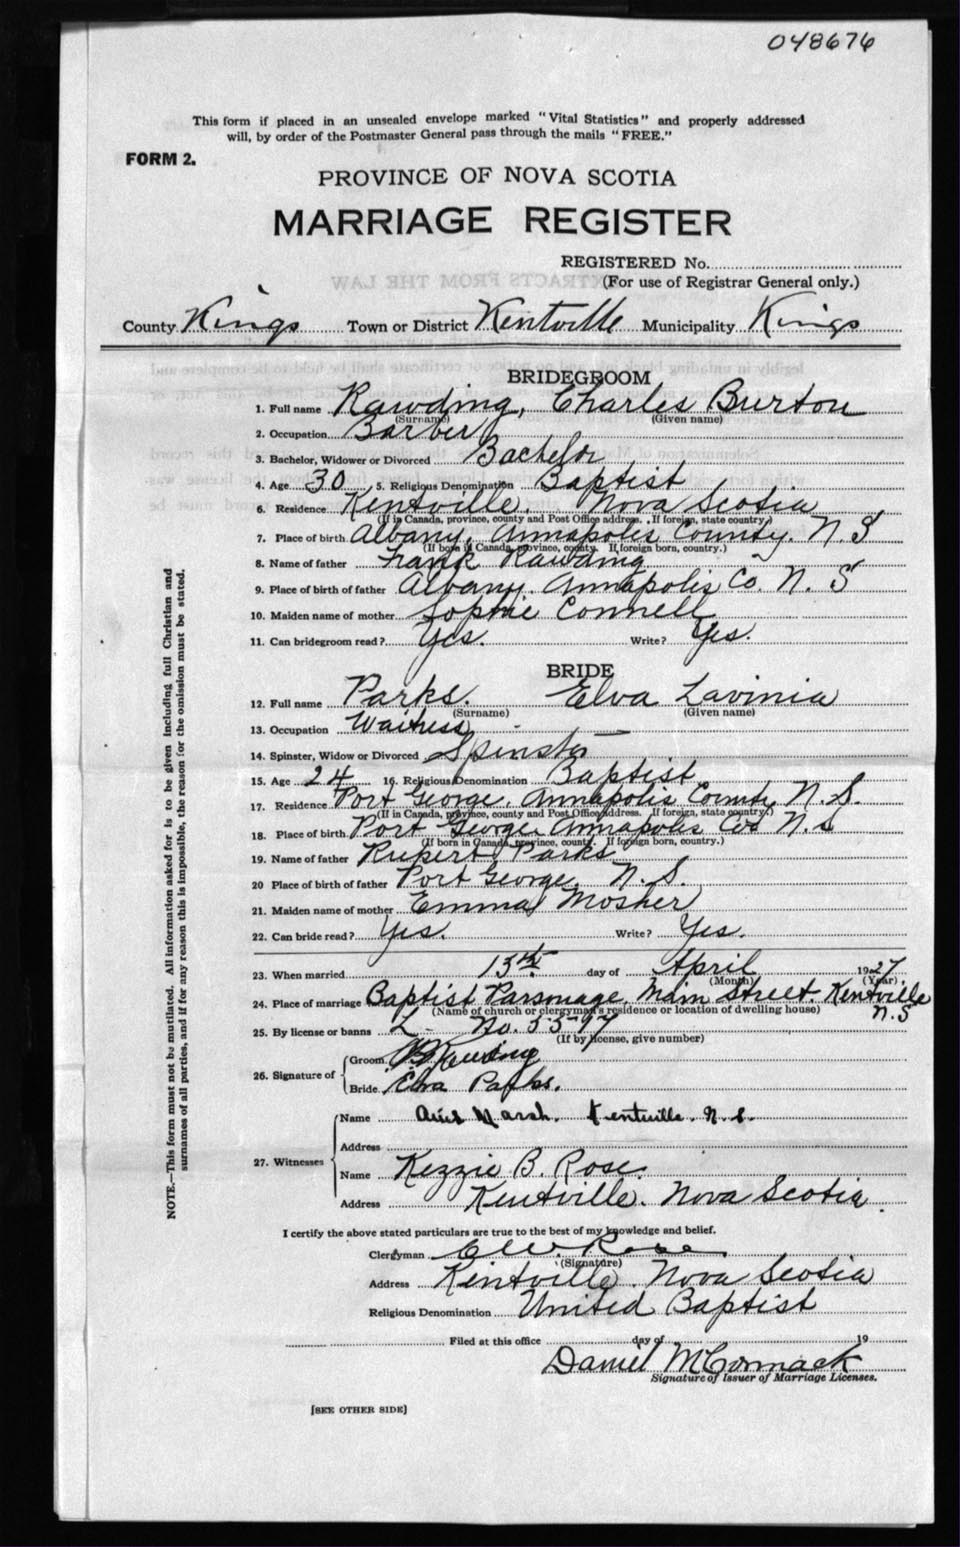 048676
This form if placed in an unsealed envelope marked "Vital Statistics" and properly addressed
will, by order of the Postmaster General pass through the mails "FREE."
FORM 2.
PROVINCE OF NOVA SCOTIA
MARRIAGE REGISTER
REGISTERED No.
(For use of Registrar General only.)
County Kings Town or District Kentville Municipality Kings
BRIDEGROOM
1. Full name Rawding, Charles Burton
(Surname) (Given name)
2. Occupation Barber
3. Bachelor, Widower or Divorced Bachelor
4. Age 30 5. Religious Denomination Baptist
6. Residence Kentville, Nova Scotia
(If in Canada, province, county and Post Office address. If foreign, state country.)
7. Place of birth Albany, Annapolis County, N. S
(If born in Canada, province, county. If foreign born, country.)
8. Name of father Frank Rawding
9. Place of birth of father Albany, Annapolis Co. N. S
10. Maiden name of mother Sophie Connell
11. Can bridegroom read? Yes. Write? Yes.
BRIDE
12. Full name Parks. Elva Lavinia
(Surname) (Given name)
13. Occupation Waitress
14. Spinster, Widow or Divorced Spinster
15. Age 24 16. Religious Denomination Baptist
17. Residence Port George, Annapolis County N. S.
(If in Canada, province, county and Post Office address. If foreign, state country.)
18. Place of birth Port George Annapolis Co N. S
(If born in Canada, province, county. If foreign born, country.)
19. Name of father Rupert Parks
20 Place of birth of father Port George, N. S.
21. Maiden name of mother Emma Mosher
22. Can bride read? Yes. Write? Yes.
23. When married 13th day of April 1927
(Month) (Year)
24. Place of marriage Baptist Parsonage, Main Street. Kentville
N. S
(Name of church or clergyman's residence or location of dwelling house)
25. By license or banns L- No. 5597
(If by license, give number)
26. Signature of
Groom Rawding
Bride Elva Parks.
27. Witnesses
Name Marsh. Kentville. N. S.
Address
Name Kezzie B. Rose.
Address Kentville. Nova Scotia.
I certify the above stated particulars are true to the best of my knowledge and belief.
Clergyman Rose
(Signature)
Address Kentville. Nova Scotia
Religious Denomination United Baptist
Filed at this office day of 19
Daniel McCormack
Signature of Issuer of Marriage Licenses.
[SEE OTHER SIDE]
NOTE.—This form must not be mutilated. All information asked for is to be given including full Christian and
surnames of all parties, and if for any reason this is impossible, the reason for the omission must be stated.